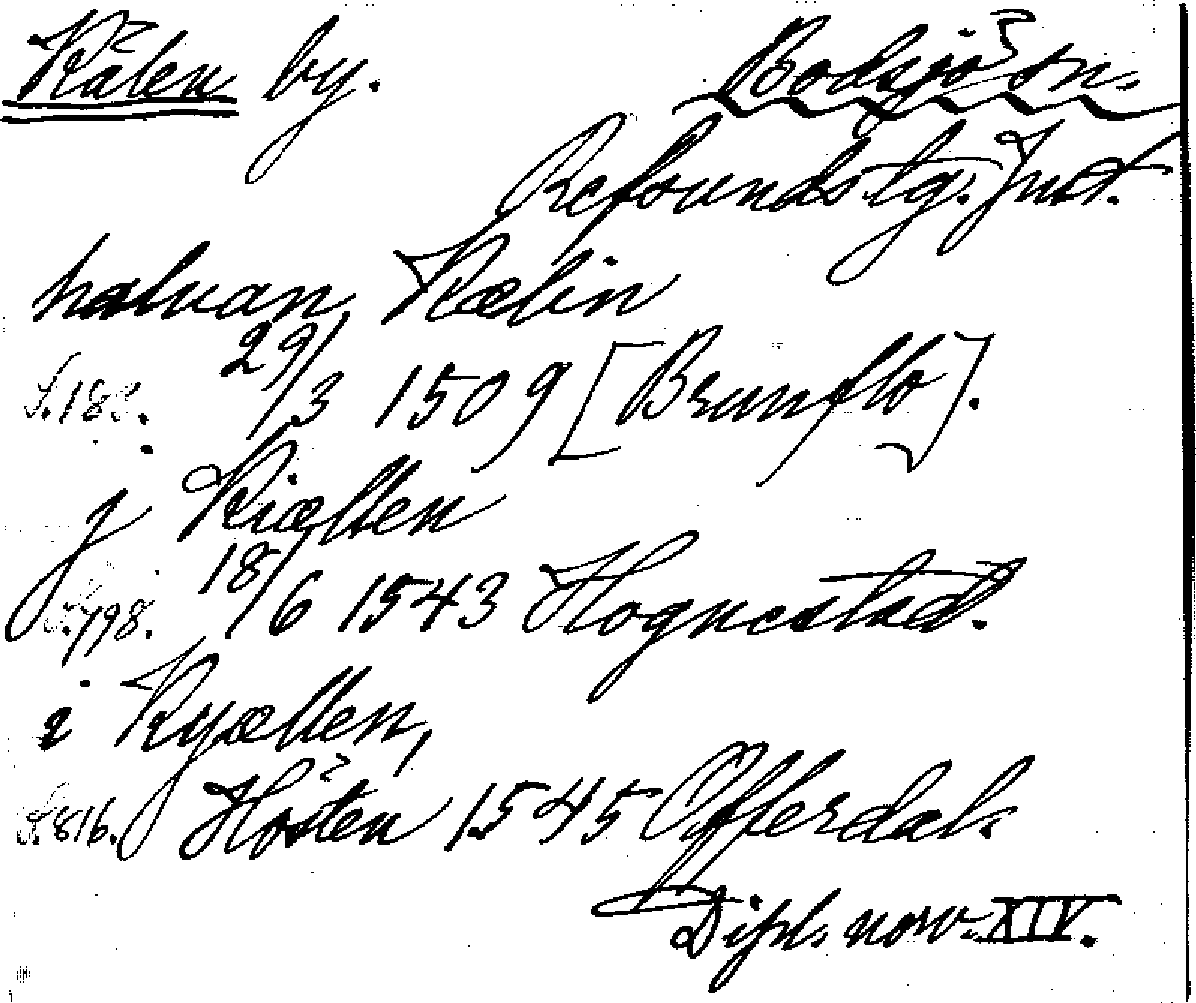 Kälen by. Bodsjö sn.
Refsunds tg. Jmt.
haluan Kælin
29/3 1509 [Brunflo].
j Kiællen
S. 798. 18/6 1543 Hognestad.
i Kyællen,
S. 816. Hösten 1545 Offerdal.
Dipl. norv. XIV.